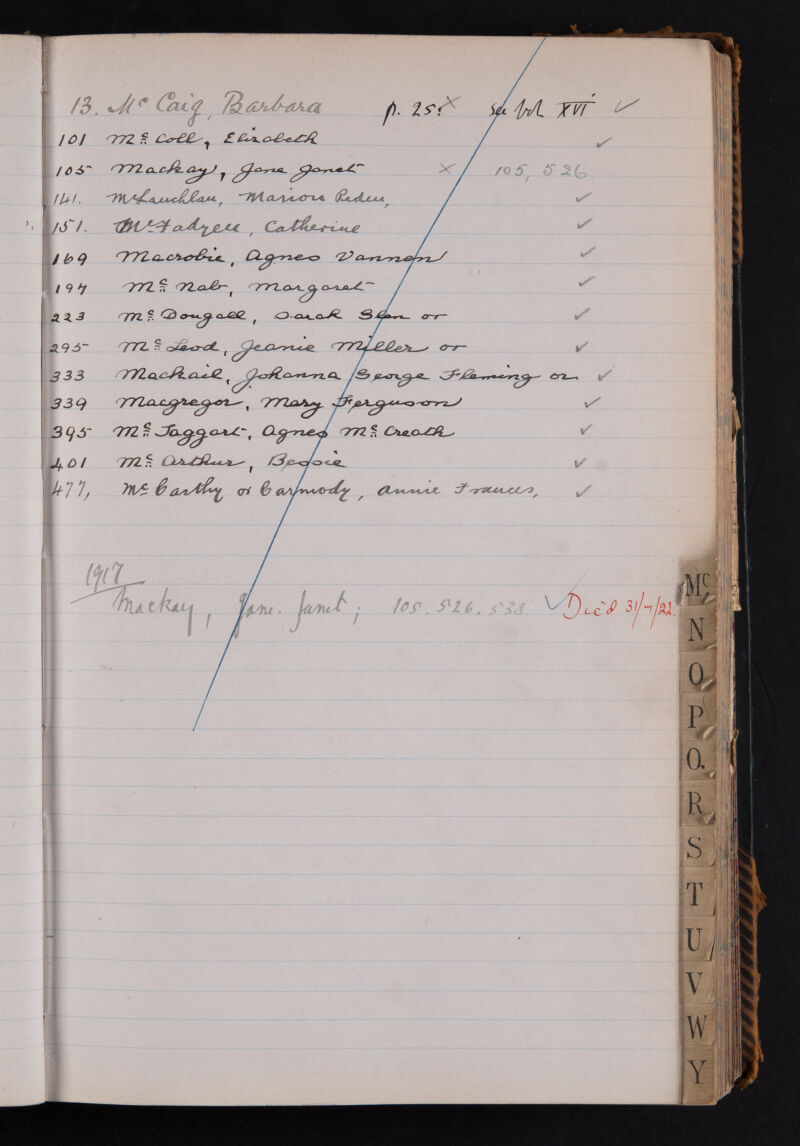 13. Mc Caig, Barbara p. 25. × see vol XVI ✓
101 Mc Coll, Elizabeth ✓
105 Mackay, Jane Janet × 105, 526
141. McLauchlan, Marion Peden, ✓
151. McFadyen, Catherine ✓
169 Macrobie, Agnes Vannan ✓
197 Mc Nab, Margaret ✓
223 Mc Dougall, Sarah Slen or ✓
295 Mc Leod, Jeanie Miller or ✓
333 Mackail, Johanna George Fleming or ✓
339 Macgregor, Mary Ferguson ✓
395 Mc Taggart, Agnes Mc Creath ✓
401 Mc Arthur, Bessie ✓
477, Mc Carthy or Carmody, Annie Frances, ✓
1917
Mackay, Jane. Janet; 105. 526. 538 ✓ Died 31/7/22.
Mc
N
O
P
Q.
R
S
T
U
V
W
Y